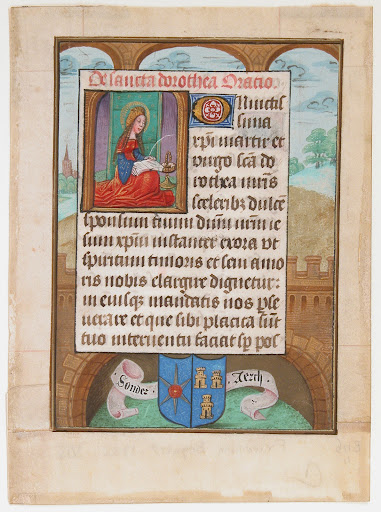 De sancta dorothea Oratio
Inuictis
sima
xpi martir et
uirgo sca do
rothea uiris
sceleribz dulcē
sponsum tuum dnm nrm ie
sum xpm instanter exora vt
spiritum timoris et sem amo
ris nobis elargire dignetur:
in eiusqz mandatis nos pse
uerare et que sibi placita sūt
tuo interuentu faciat sp pos
Sonder
Aerch